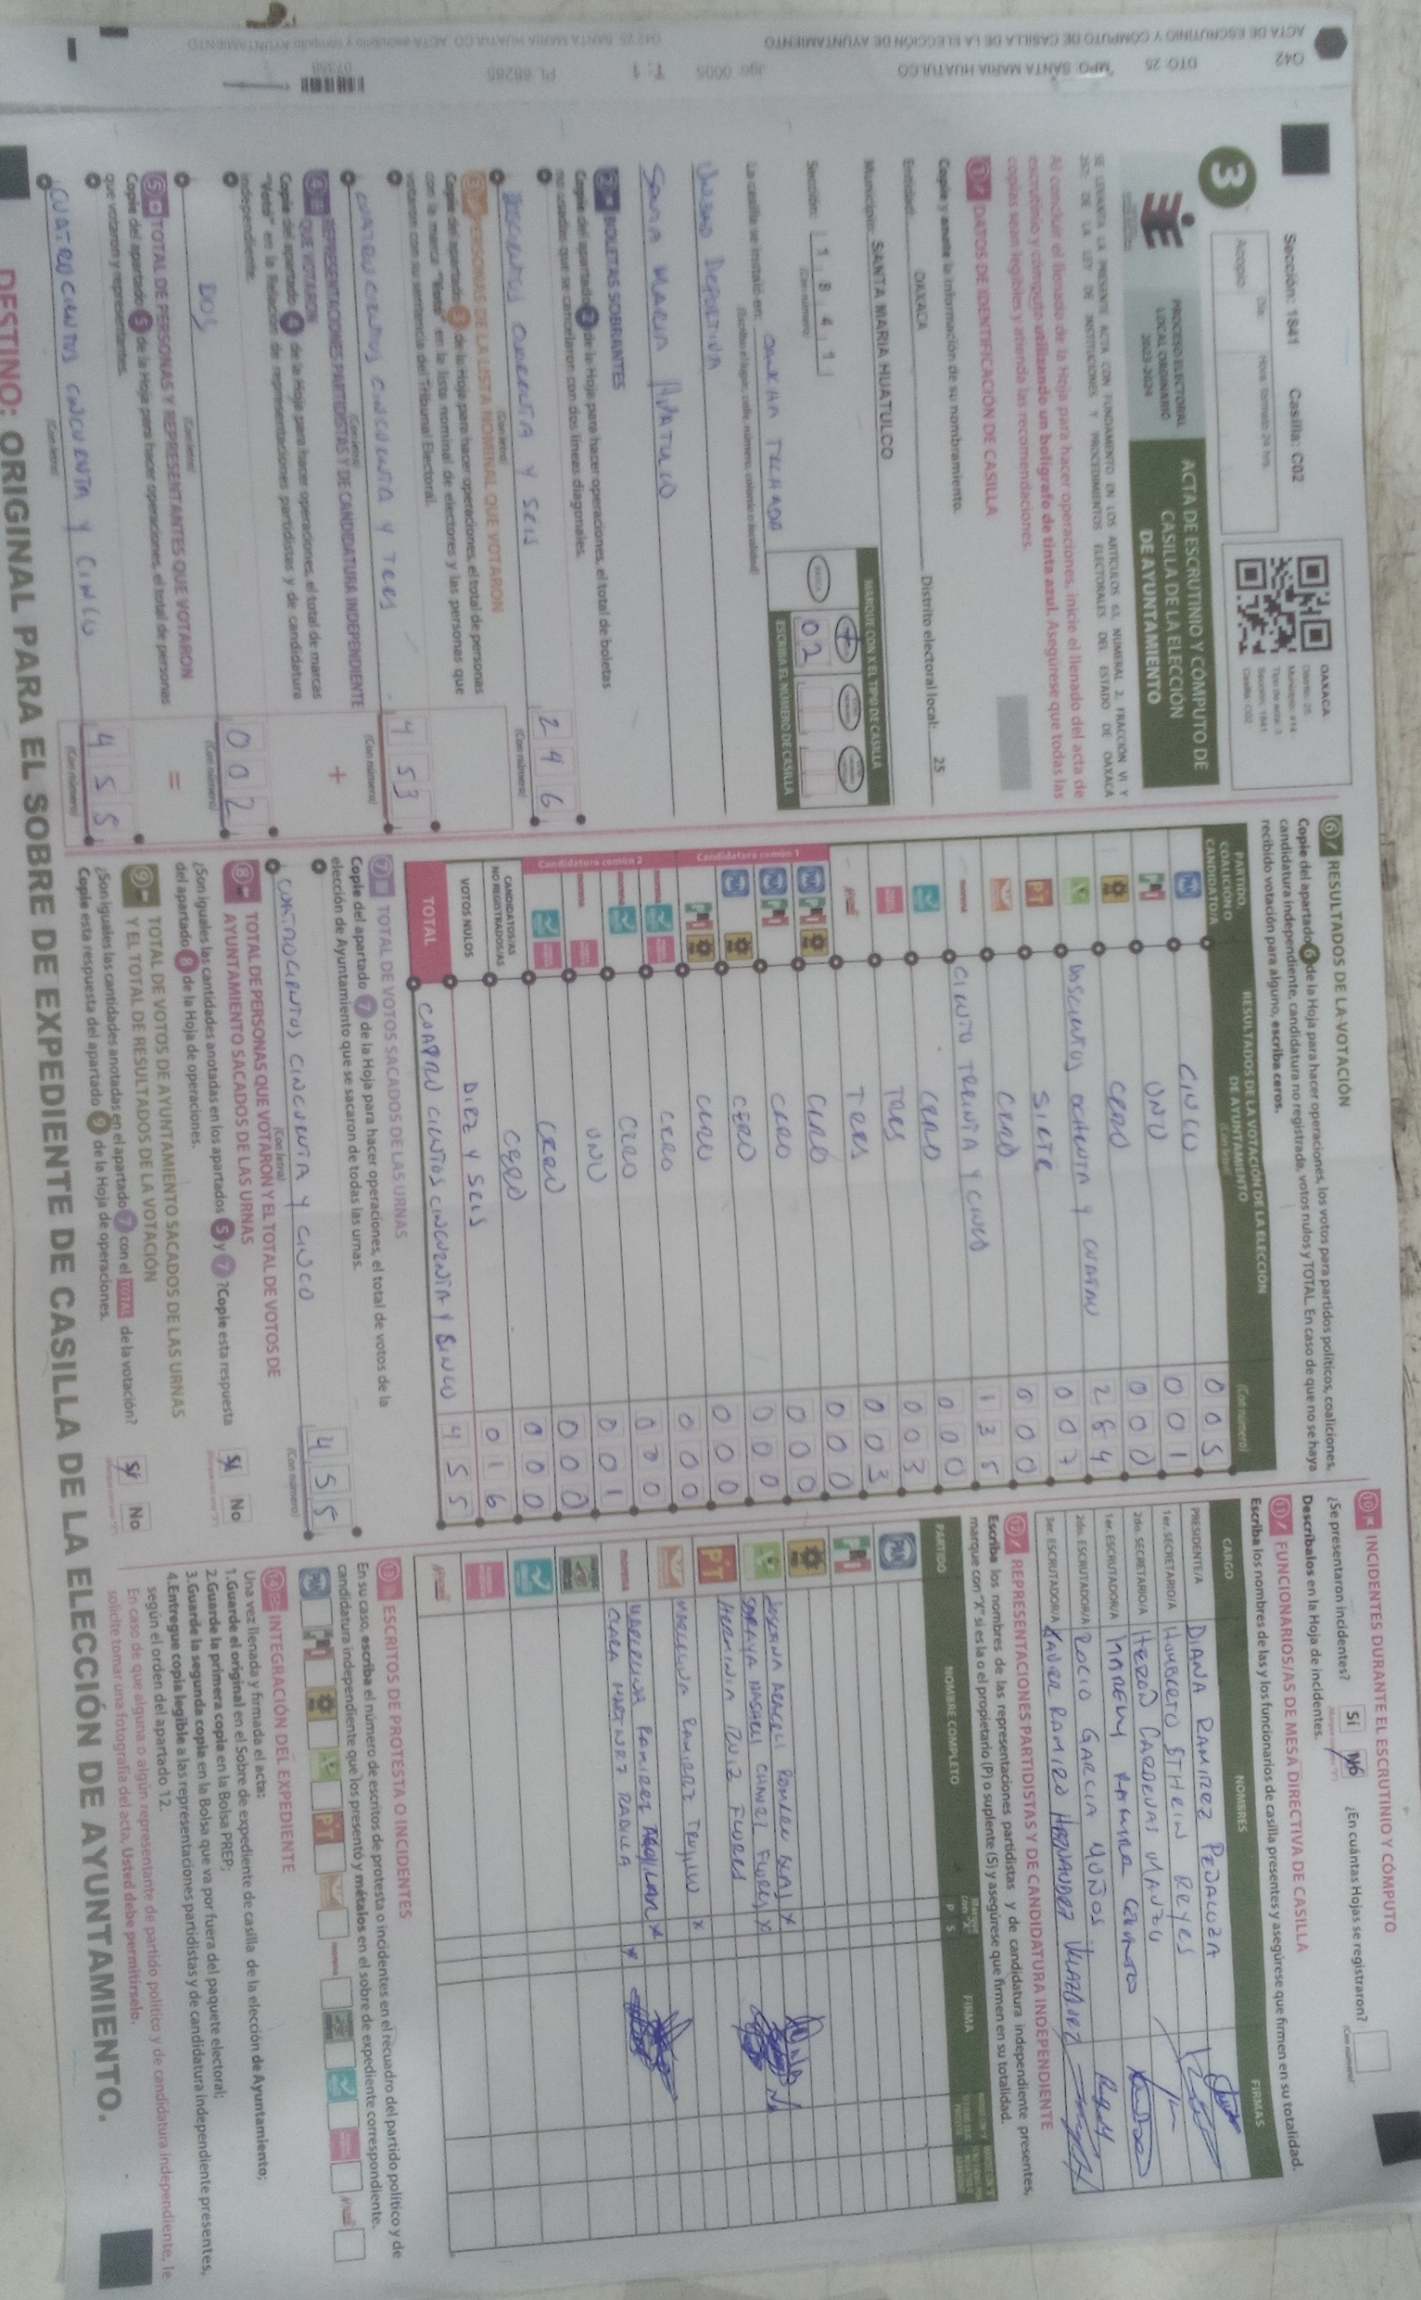 042 DTO. 25 MPO. SANTA MARIA HUATULCO
ACTA DE ESCRUTINIO Y CÓMPUTO DE CASILLA DE LA ELECCIÓN DE AYUNTAMIENTO
Sección: 1841 Casilla: C02
3
Acopio
Día
PROCESO ELECTORAL
LOCAL ORDINARIO
2023-2024
ACTA DE ESCRUTINIO Y CÓMPUTO DE
CASILLA DE LA ELECCIÓN
DE AYUNTAMIENTO
OAXACA
SE LEVANTA LA PRESENTE ACTA CON FUNDAMENTO EN LOS ARTÍCULOS 63, NUMERAL 2, FRACCIÓN VI Y
257; DE LA LEY DE INSTITUCIONES Y PROCEDIMIENTOS ELECTORALES DEL ESTADO DE OAXACA
Al concluir el llenado de la Hoja para hacer operaciones, inicie el llenado del acta de
escrutinio y cómputo utilizando un bolígrafo de tinta azul. Asegúrese que todas las
copias sean legibles y atienda las recomendaciones.
1 DATOS DE IDENTIFICACIÓN DE CASILLA
Copie y anote la información de su nombramiento.
Entidad: OAXACA Distrito electoral local: 25
Municipio: SANTA MARIA HUATULCO
Sección: 1 8 4 1
(Con número)
MARQUE CON X EL TIPO DE CASILLA
ESCRIBA EL NÚMERO DE CASILLA
02
La casilla se instaló en: CANCHA TECHADA
UNIDAD DEPORTIVA
SANTA MARIA HUATULCO
2 BOLETAS SOBRANTES
Copie del apartado 2 de la Hoja para hacer operaciones, el total de boletas
no usadas que se cancelaron con dos líneas diagonales.
DOSCIENTOS CUARENTA Y SEIS 246
(Con letra) (Con número)
3 PERSONAS DE LA LISTA NOMINAL QUE VOTARON
Copie del apartado 3 de la Hoja para hacer operaciones, el total de personas
con la marca "Votó" en la lista nominal de electores y las personas que
votaron con su sentencia del Tribunal Electoral.
CUATROCIENTOS CINCUENTA Y TRES 453
(Con letra) (Con número)
4 REPRESENTACIONES PARTIDISTAS Y DE CANDIDATURA INDEPENDIENTE
QUE VOTARON
Copie del apartado 4 de la Hoja para hacer operaciones, el total de marcas
"Votó" en la Relación de representaciones partidistas y de candidatura
independiente.
+
DOS 002
(Con letra) (Con número)
5 TOTAL DE PERSONAS Y REPRESENTANTES QUE VOTARON
Copie del apartado 5 de la Hoja para hacer operaciones, el total de personas
que votaron y representantes.
=
CUATROCIENTOS CINCUENTA Y CINCO 455
(Con letra) (Con número)
6 RESULTADOS DE LA VOTACIÓN
Copie del apartado 6 de la Hoja para hacer operaciones, los votos para partidos políticos, coaliciones,
candidatura independiente, candidatura no registrada, votos nulos y TOTAL. En caso de que no se haya
recibido votación para alguno, escriba ceros.
PARTIDO,
COALICIÓN O
CANDIDATO/A
RESULTADOS DE LA VOTACIÓN DE LA ELECCIÓN
DE AYUNTAMIENTO
(Con letra) (Con número)
PAN CINCO 005
UNO 001
CERO 000
DOSCIENTOS OCHENTA Y CUATRO 284
PT SIETE 007
CERO 000
morena CIENTO TREINTA Y CINCO 135
CERO 000
TRES 003
TRES 003
Candidatura común 1
CERO 000
CERO 000
CERO 000
CERO 000
Candidatura común 2
CERO 000
CERO 000
UNO 001
CERO 000
CANDIDATOS/AS
NO REGISTRADOS/AS CERO 000
VOTOS NULOS DIEZ Y SEIS 016
TOTAL 455
7 TOTAL DE VOTOS SACADOS DE LAS URNAS
Copie del apartado 7 de la Hoja para hacer operaciones, el total de votos de la
elección de Ayuntamiento que se sacaron de todas las urnas.
CINCUENTA Y CINCO 455
(Con letra) (Con número)
8 TOTAL DE PERSONAS QUE VOTARON Y EL TOTAL DE VOTOS DE
AYUNTAMIENTO SACADOS DE LAS URNAS
¿Son iguales las cantidades anotadas en los apartados 5 y 7? Copie esta respuesta
del apartado 8 de la Hoja de operaciones.
Sí No
9 TOTAL DE VOTOS DE AYUNTAMIENTO SACADOS DE LAS URNAS
Y EL TOTAL DE RESULTADOS DE LA VOTACIÓN
¿Son iguales las cantidades anotadas en el apartado 7 con el TOTAL de la votación?
Copie esta respuesta del apartado 9 de la Hoja de operaciones.
Sí No
10 INCIDENTES DURANTE EL ESCRUTINIO Y CÓMPUTO
¿Se presentaron incidentes? Sí No ¿En cuántas Hojas se registraron?
Descríbalos en la Hoja de incidentes.
11 FUNCIONARIOS/AS DE MESA DIRECTIVA DE CASILLA
Escriba los nombres de las y los funcionarios de casilla presentes y asegúrese que firmen en su totalidad.
CARGO NOMBRES FIRMAS
PRESIDENTE/A DIANA RAMIREZ PEÑALOZA
1er. SECRETARIO/A REYES
2do. SECRETARIO/A CARDENAS
1er. ESCRUTADOR/A
2do. ESCRUTADOR/A ROCIO GARCIA MUÑOS
3er. ESCRUTADOR/A XAVIER RAMIRO HERNANDEZ
12 REPRESENTACIONES PARTIDISTAS Y DE CANDIDATURA INDEPENDIENTE
Escriba los nombres de las representaciones partidistas y de candidatura independiente presentes,
marque con "X" si es la o el propietario (P) o suplente (S) y asegúrese que firmen en su totalidad.
PARTIDO NOMBRE COMPLETO P S FIRMA
HERMINIA RUIZ FLORES
MARCELINA RAMIREZ TRUJILLO X
MARTINEZ RADILLA X
13 ESCRITOS DE PROTESTA O INCIDENTES
En su caso, escriba el número de escritos de protesta o incidentes en el recuadro del partido político y de
candidatura independiente que los presentó y métalos en el sobre de expediente correspondiente.
14 INTEGRACIÓN DEL EXPEDIENTE
Una vez llenada y firmada el acta:
1.Guarde el original en el Sobre de expediente de casilla de la elección de Ayuntamiento;
2.Guarde la primera copia en la Bolsa PREP;
3.Guarde la segunda copia en la Bolsa que va por fuera del paquete electoral;
4.Entregue copia legible a las representaciones partidistas y de candidatura independiente presentes,
según el orden del apartado 12.
En caso de que alguna o algún representante de partido político y de candidatura independiente, le
solicite tomar una fotografía del acta, Usted debe permitírselo.
DESTINO: ORIGINAL PARA EL SOBRE DE EXPEDIENTE DE CASILLA DE LA ELECCIÓN DE AYUNTAMIENTO.